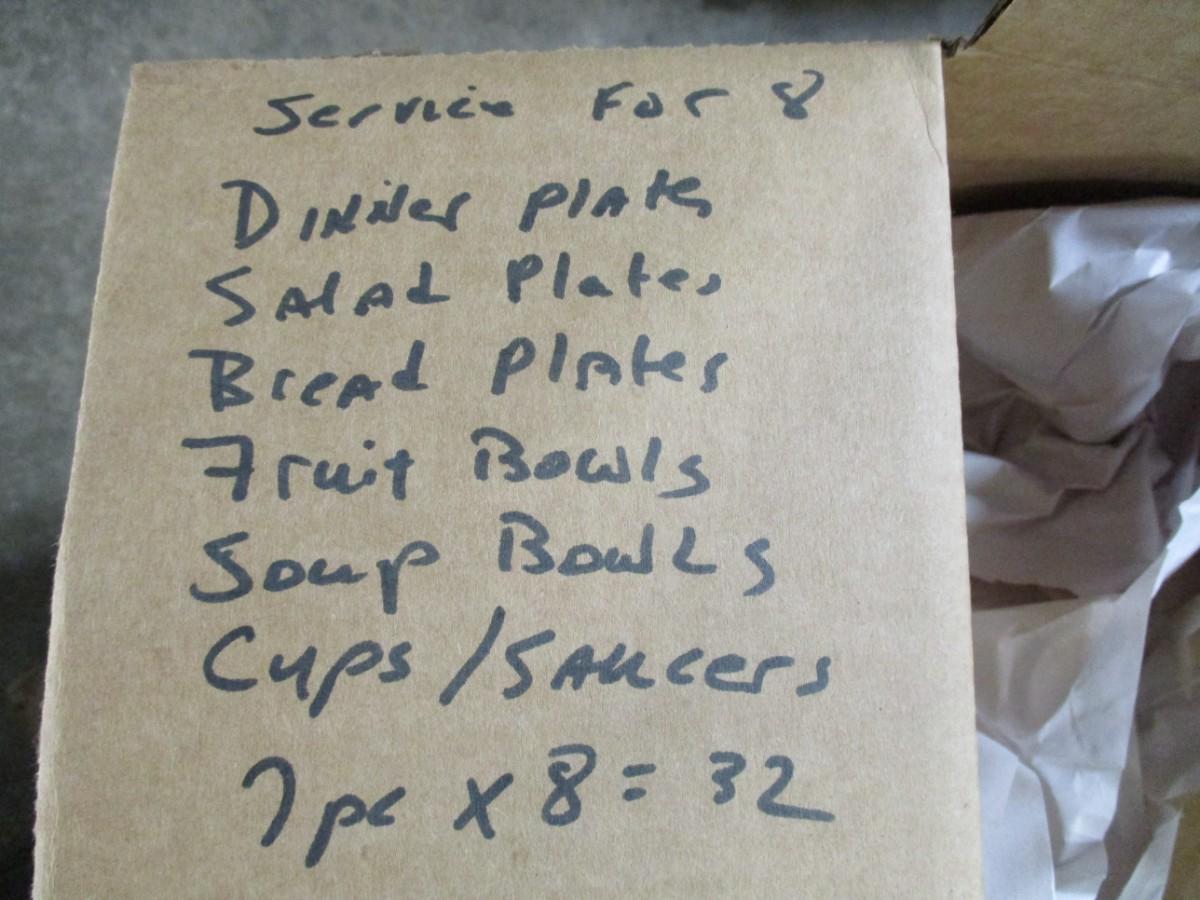 Service For 8
Dinner Plates
Salad Plates
Bread Plates
Fruit Bowls
Soup Bowls
Cups / Saucers
7 pc x 8 = 32